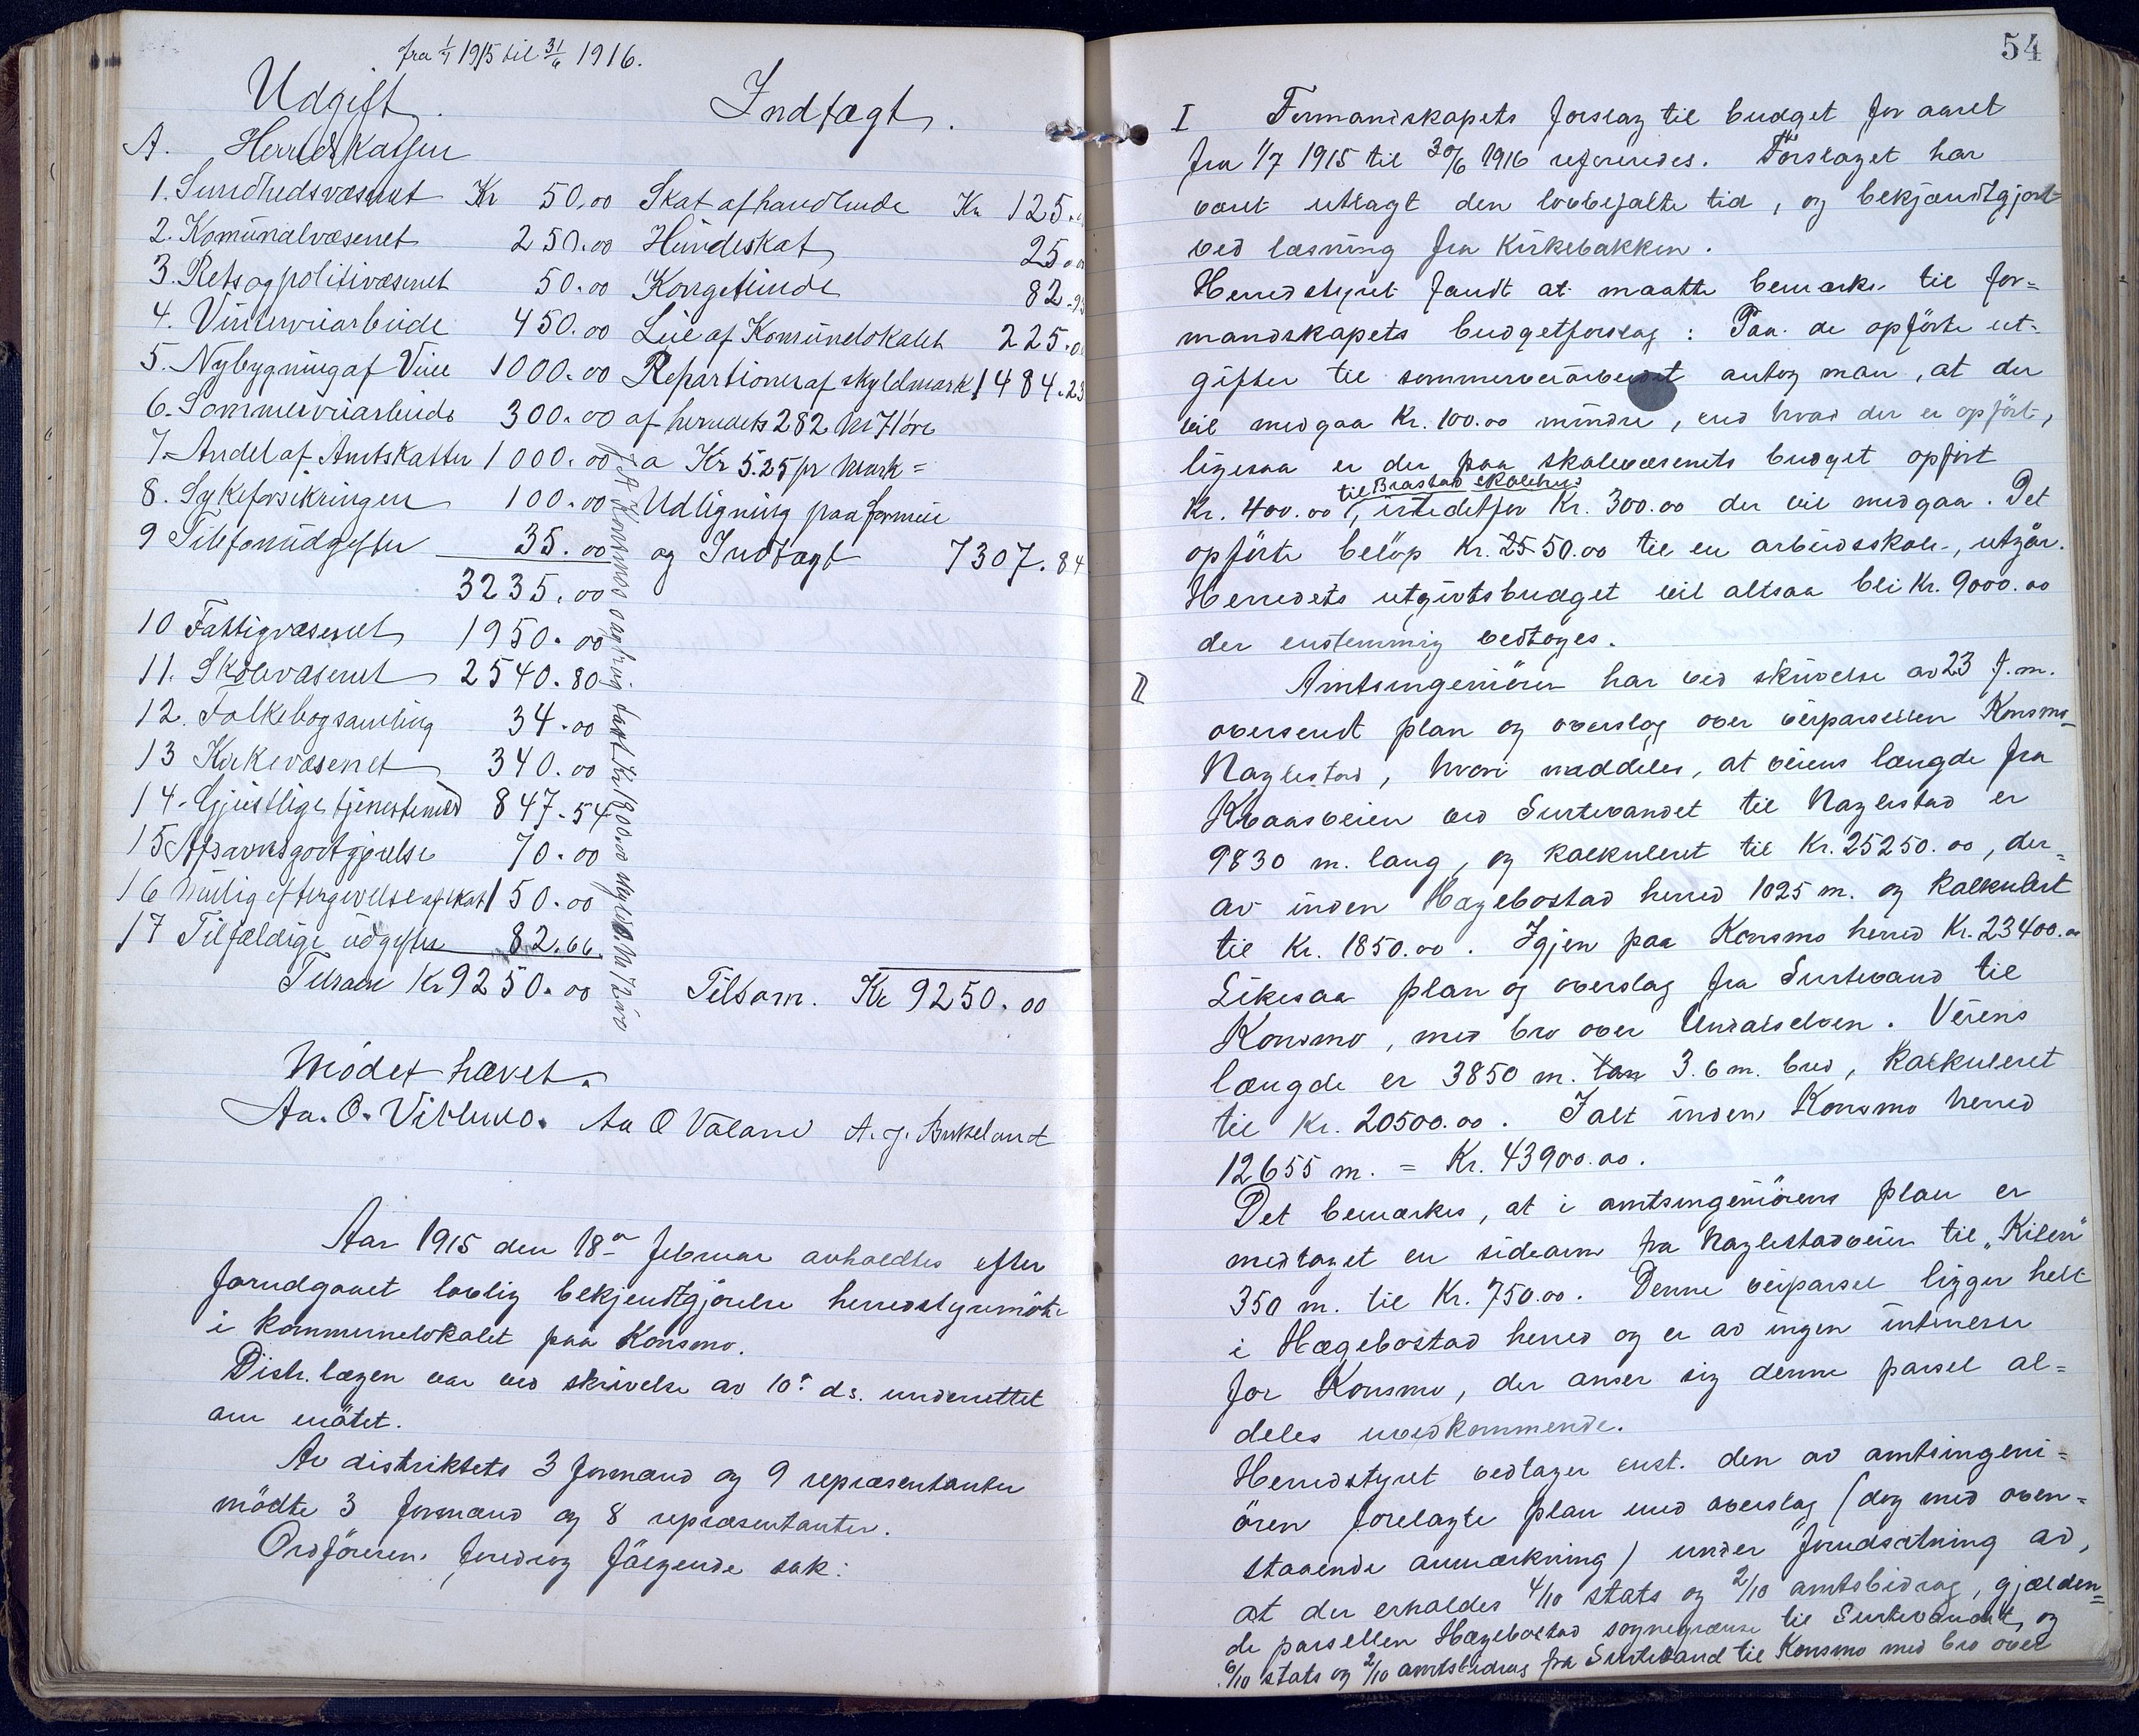 fra 1/7 1915 til 31/6 1916.
Udgift. Indtægt.
A. Herredskassen
1. Sundhedsvæsenet Kr 50,00 Skat af handlende Kr 125.
2. Komunalvæsenet 250.00 Hundeskat 25.00
3. Rets og politivæsenet 50.00 Kongetiende 82.9
4. Vinterveiarbeide 450.00 Leie af Komunelokalet 225.0
5. Nybygning af Veie 1000.00 Repartioner af skyldmark 1484.23
6. Sommerveiarbeide 300.00 af herredets 282 Mr 71 öre
7. Andel af Amtskatten 1000.00 a Kr 5.25 pr Mark =
8. Sykeforsikringen 100.00 Udligning paa formue
9 Telefonudgifter 35.00 og Indtægt 7307.84
3235.00
10 Fattigvæsenet 1950.00
11. Skolevæsenet 2540.80
12. Folkebogsamling 34.00
13 Kirkevæsenet 340.00
14. Gjeistlige tjenestemænd 847.54
15 Afsavnsgodtgjörelse 70.00
16 Mulig eftergivelse af skat 150.00
17 Tilfældige udgifter 82.66.
Tilsam Kr 9250.00 Tilsam. Kr 9250.00
Mödet hævet.
Aa. O. Aa O Valand A. J. Birkeland
Aar 1915 den 18de februar avholdtes efter
forudgaaet lovlig bekjendtgjörelse herredsstyremöte
i kommunelokalet paa Konsmo.
Distr. lægen var ved skrivelse av 10. ds. underrettet
om mötet.
Av distriktets 3 formænd og 9 repræsentanter
mödte 3 formænd og 8 repræsentanter.
Ordföreren foredrog fölgende sak:
54
I Formandskapets forslag til budget for aaret
fra 1/7 1915 til 30/6 1916 refereredes. Forslaget har
været utlagt den lovbefalte tid, og bekjendtgjort
ved læsning fra Kirkebakken.
Herredstyret fandt at maatte bemerke til for=
mandskapets budgetforslag: Paa de opförte ut-
gifter til sommerveiarbeidet antog man, at der
vil medgaa Kr. 100.00 mindre, end hvad der er opfört,
ligesaa er der paa skolevæsenets budget opfört
til Brastad skolehus
Kr. 400.00, istedetfor Kr. 300.00 der vil medgaa. Det
opförte belöp Kr. 50.00 til en arbeidsskole, utgår.
Herredets utgivtsbudget vil altsaa bli Kr. 9000.00
der enstemmig vedtoges.
II Amtsingeniören har ved skrivelse av 23 f.m.
oversendt plan og overslag over veiparsellen Konsmo-
Naglestad, hvori meddeles, at veiens længde fra
Kvaasveien ved Surtevandet til Naglestad er
9830 m. lang, og kalkuleret til Kr. 25250.00, der=
av inden Hægebostad herred 1025 m. og kalkulert
til Kr. 1850.00. Igjen paa Konsmo herred Kr. 23400.00
Likesaa plan og overslag fra Surtevand til
Konsmo, med bro over Undalselven. Veiens
længde er 3850 m. 3.6 m. bred, kalkuleret
til Kr. 20500.00. Ialt inden Konsmo herred
12655 m. = Kr. 43900.00.
Det bemærkes, at i amtsingeniörens plan er
medtaget en sidearm fra Naglestadveien til „Kilen"
350 m. til Kr. 750.00. Denne veiparsel ligger helt
i Hægebostad herred og er av ingen interesse
for Konsmo, der anser sig denne parsel al=
deles uvedkommende.
Herredstyret vedtager enst. den av amtsingeni=
ören forelagte plan med overslag (dog med oven=
staaende anmærkning) under forudsætning av,
at der erholdes 4/10 stats og 2/10 amtsbidrag, gjælden=
de parsellen Hægebostad sognegrænse til Surtevandet, og
6/10 stats og 2/10 amtsbidrag fra Surtevand til Konsmo med bro over